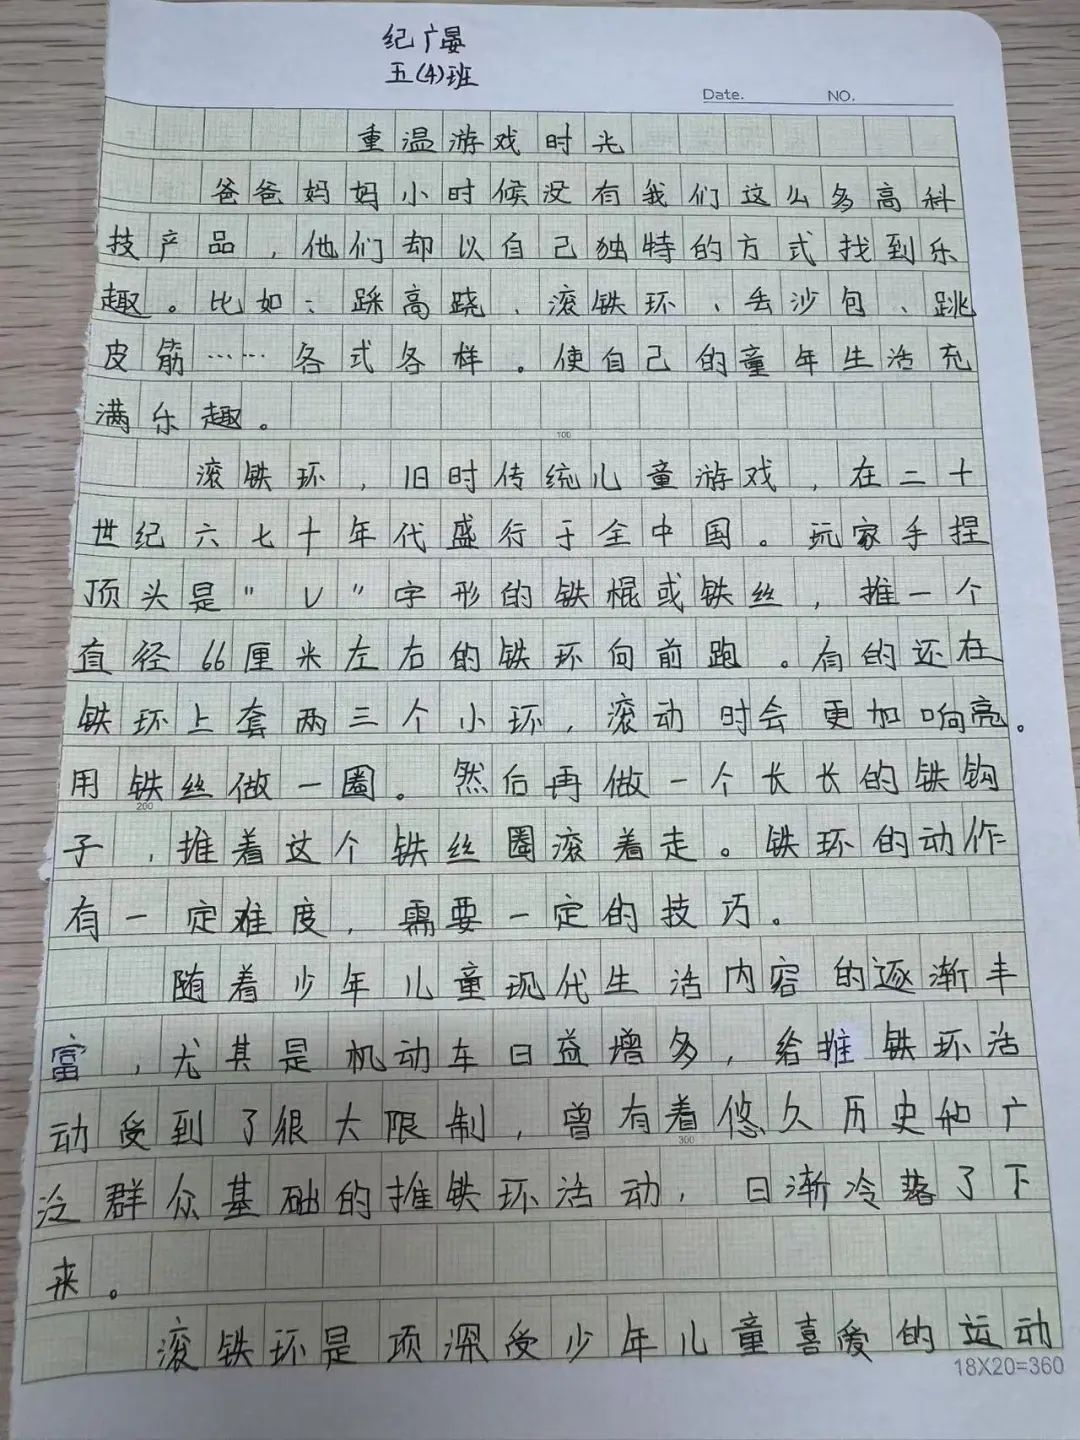 纪广晏
五(4)班
Date. NO.
重温游戏时光
爸爸妈妈小时候没有我们这么多高科
技产品，他们却以自己独特的方式找到乐
趣。比如：踩高跷、滚铁环、丢沙包、跳
皮筋……各式各样。使自己的童年生活充
满乐趣。
100
滚铁环，旧时传统儿童游戏，在二十
世纪六七十年代盛行于全中国。玩家手捏
顶头是"U"字形的铁棍或铁丝，推一个
直径66厘米左右的铁环向前跑。有的还在
铁环上套两三个小环，滚动时会更加响亮。
用铁丝做一圈。然后再做一个长长的铁钩
200
子，推着这个铁丝圈滚着走。铁环的动作
有一定难度，需要一定的技巧。
随着少年儿童现代生活内容的逐渐丰
富，尤其是机动车日益增多，给推铁环活
动受到了很大限制，曾有着悠久历史和广
300
泛群众基础的推铁环活动，日渐冷落了下
来。
滚铁环是项深受少年儿童喜爱的运动
18X20=360